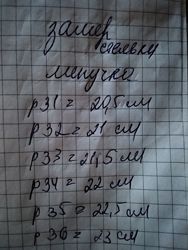 замер
стельки
липучка
р31 = 20,5 см
р32 = 21 см
р33 = 21,5 см
р34 = 22 см
р35 = 22,5 см
р36 = 23 см